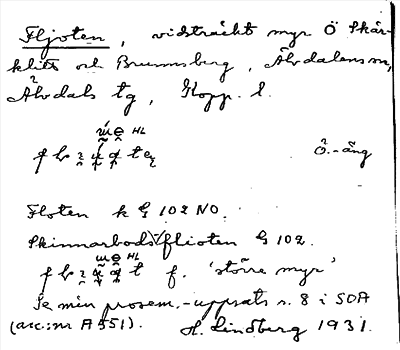 Fljoten, vidsträckt myr Ö Skär-
klitt och Brunnsberg, Älvdalens sn,
Älvdals tg, Kopp. l.
HL
Ö.-äng
Floten k G 102 NO.
Skinnarbodsflioten G 102.
HL
f. 'större myr'
Se min prosem.-uppsats s. 8 i SOA
(acc:nr A551). H. Lindberg 1931.